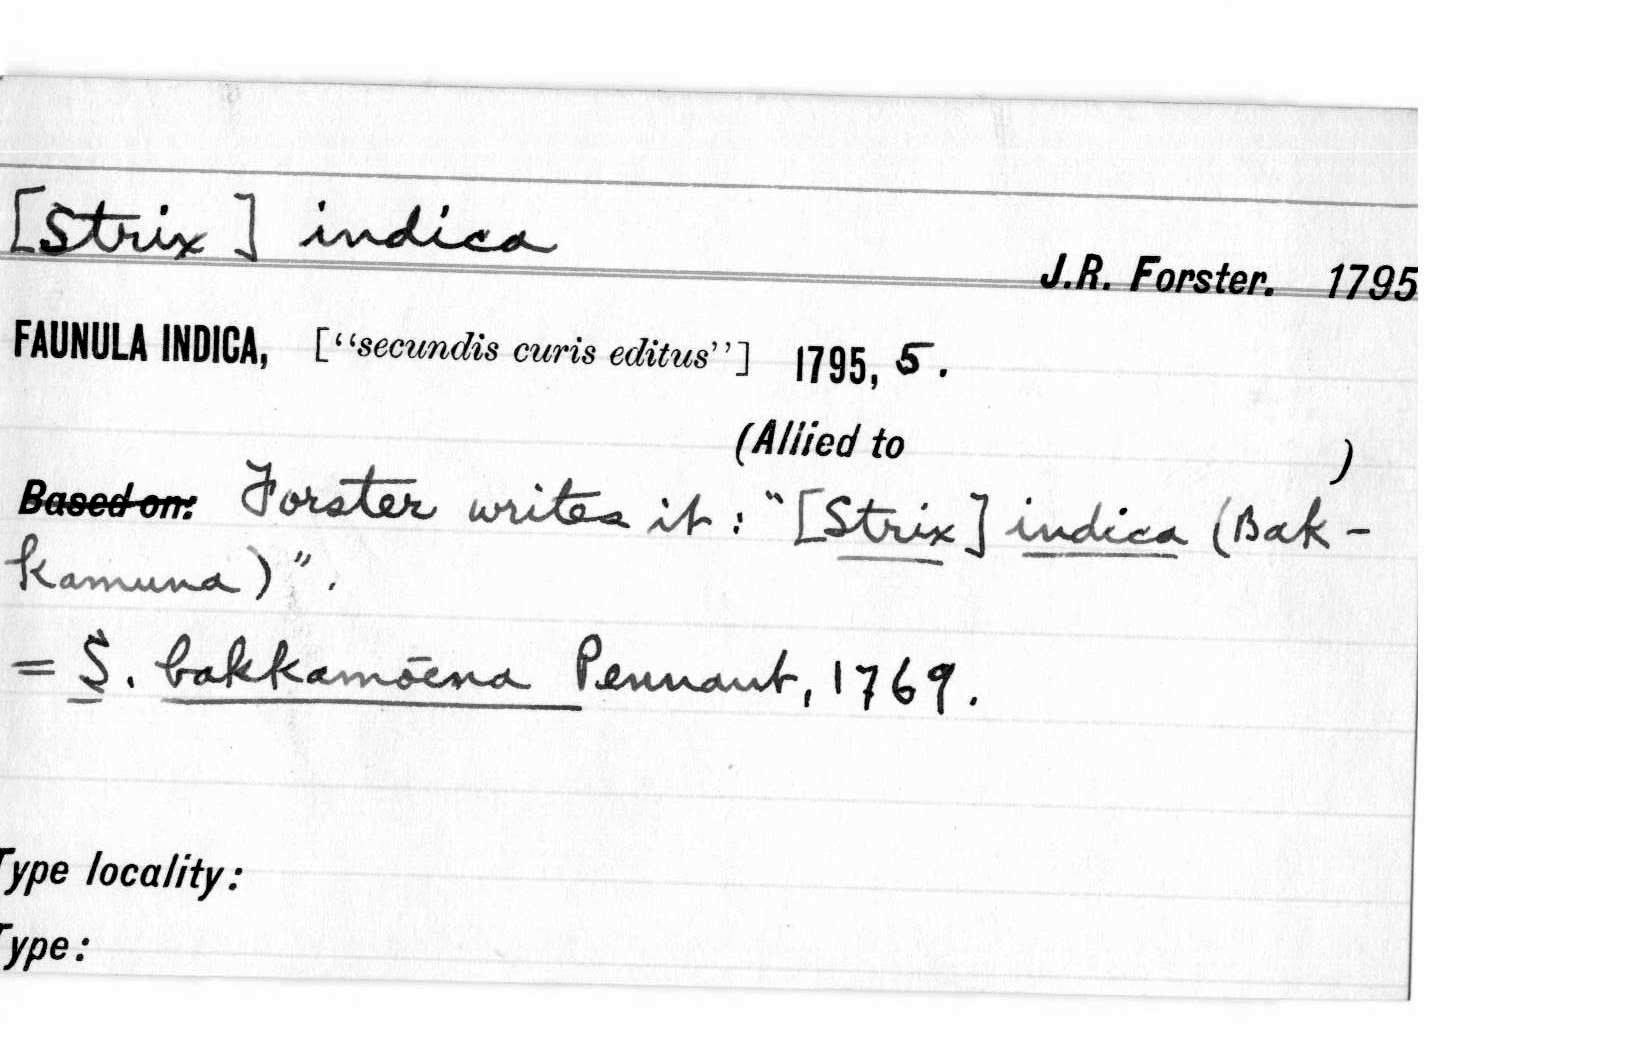 [Strix] indica
J.R. Forster. 1795
FAUNULA INDICA, [“secundis curis editus”] 1795, 5.
(Allied to )
Based on: Forster writes it: "[Strix] indica (Bak-
kamuna)".
= S. bakkamoena Pennant, 1769.
Type locality:
Type: